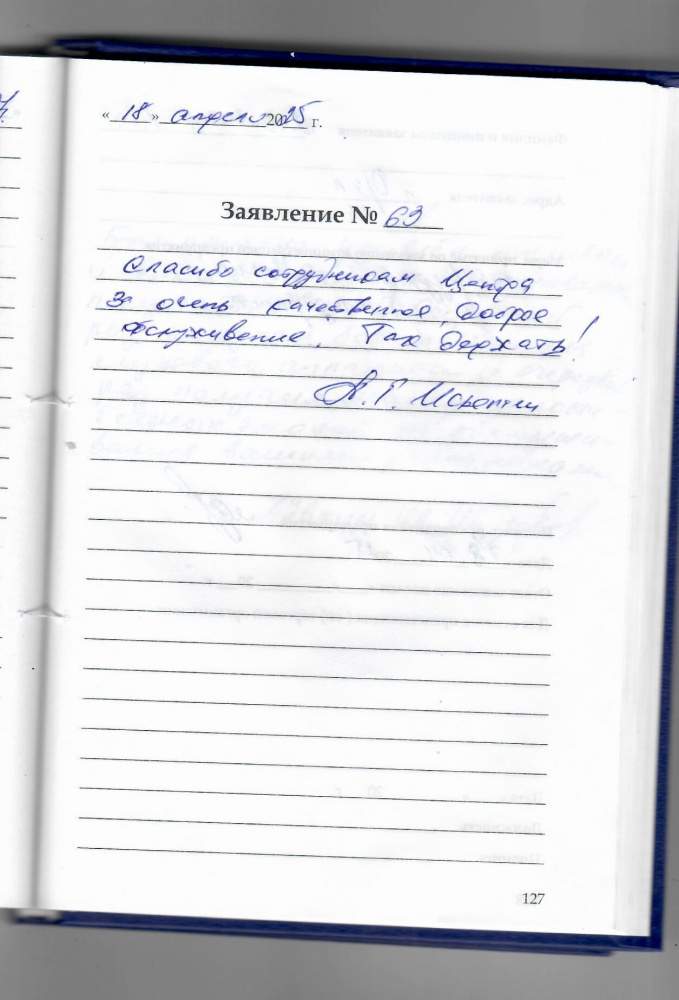 « 18 » апреля 2025 г.
Заявление № 69
Спасибо сотрудникам Центра
за очень качественное, доброе
обслуживание. Так держать!
А. Г.
127